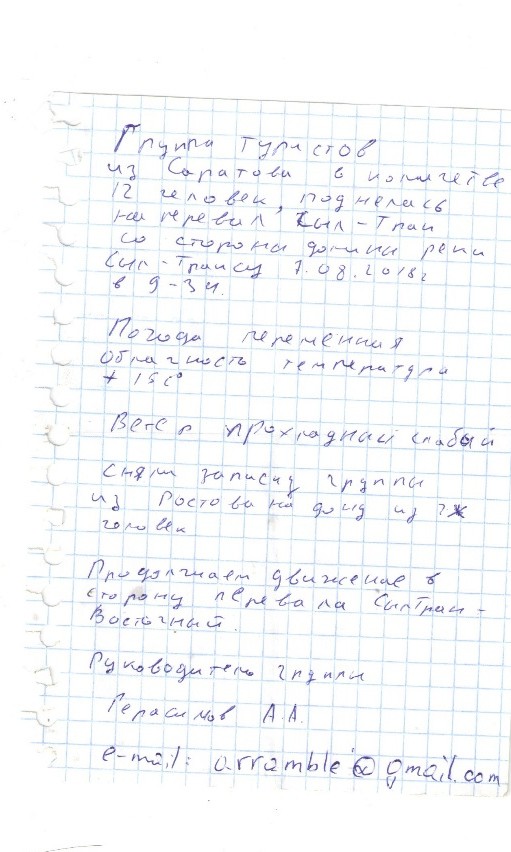 Группа туристов
из Саратова в количестве
12 человек, поднелась
на перевал Сыл-Тран
со стороны долины реки
Сыл-Трансу 7.08.2018г
в 9-34.
Погода переменная
облачность температура
+15 с°
Ветер прохладный слабый
сняли записку группы
из Ростова на дону из
человек
Продолжаем движение в
сторону перевала СылТран-
Восточный.
Руководитель группы
Герасимов А.А.
e-mail: a.rramble@gmail.com